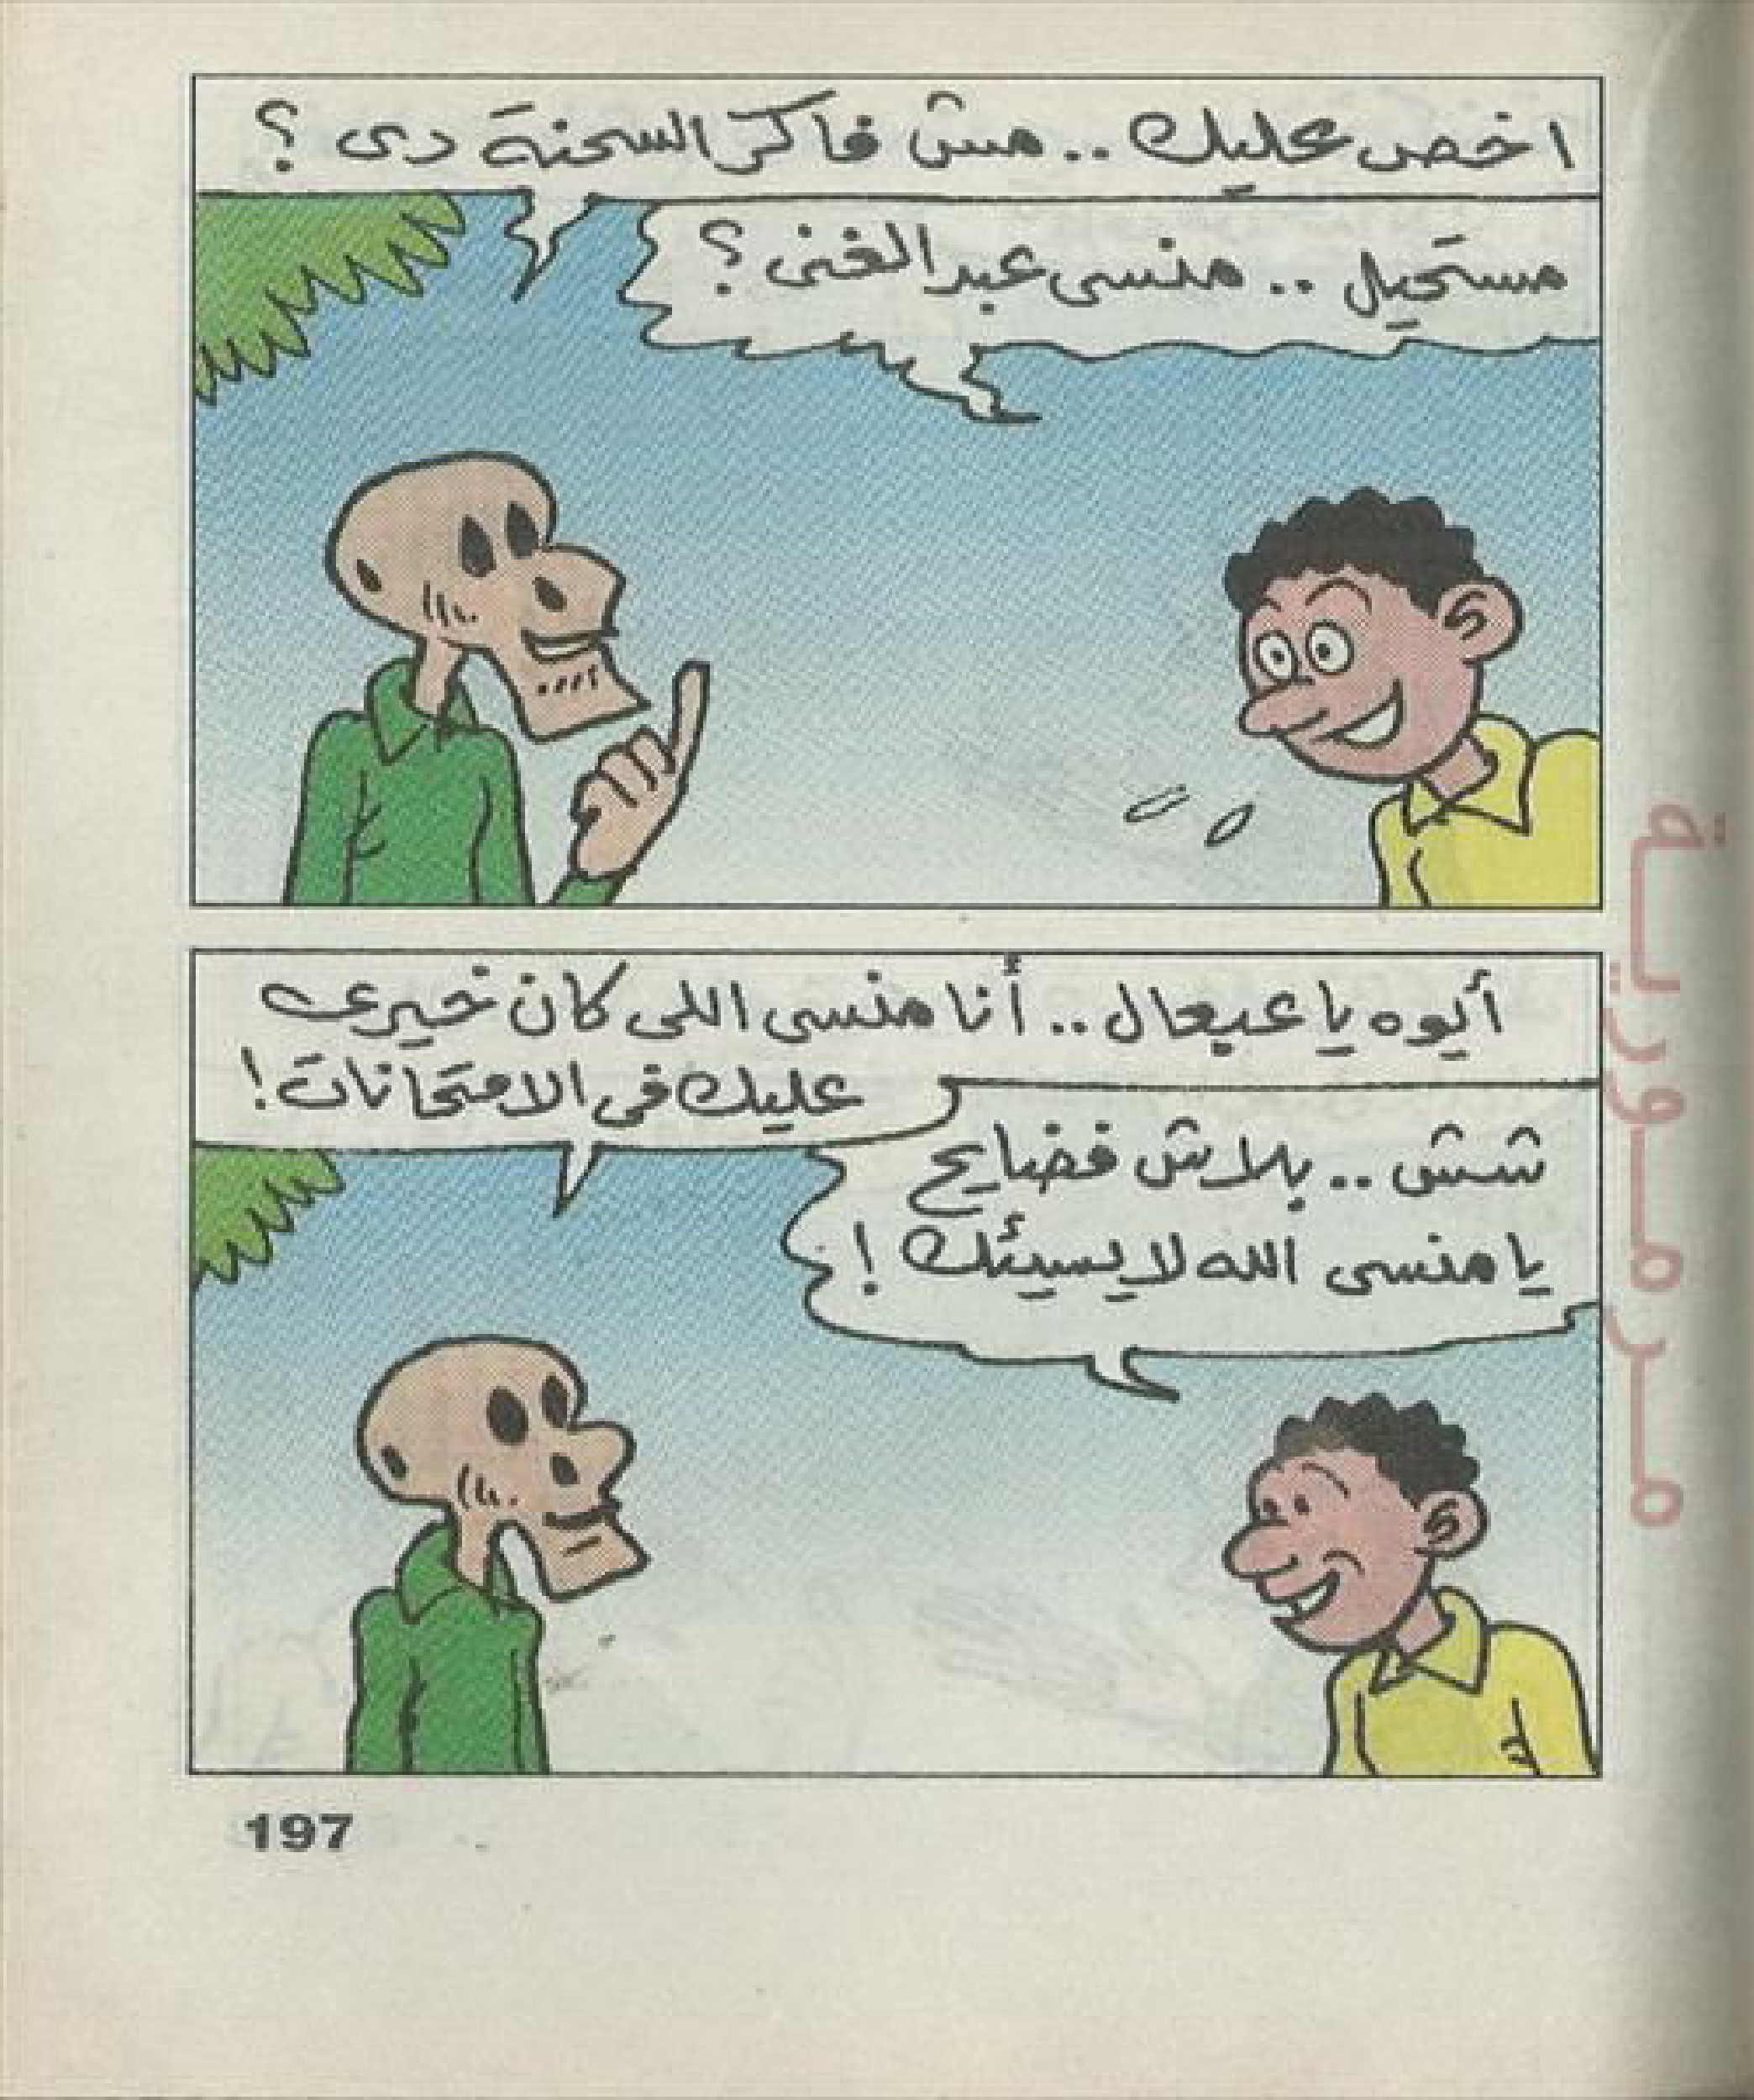 اخص عليك .. مش فاكر السحنة دى ؟
مستحيل .. منسى عبد الغنى ؟
أيوه يا عبعال .. أنا منسى اللى كان خيرى
عليك فى الامتحانات !
شش .. بلاش فضايح
يا منسى الله لا يسيئك !
مرمورية
197